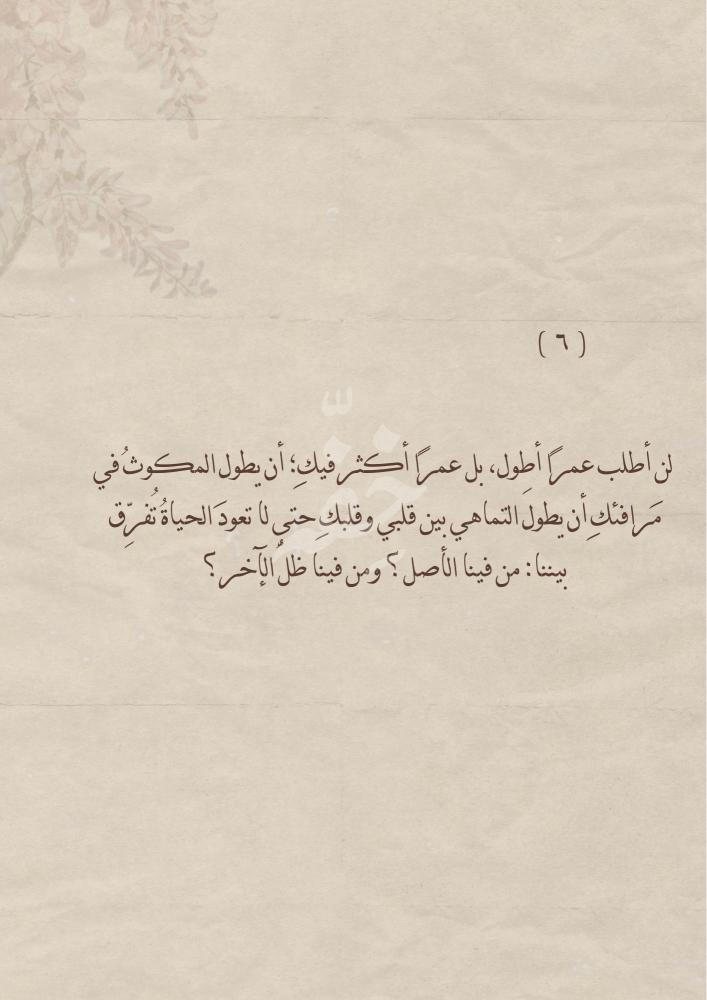 ( ٦ )
لن أطلب عمراً أطول، بل عمراً أكثر فيكِ؛ أن يطول المكوثُ في
مَرافئكِ أن يطول التماهي بين قلبي وقلبكِ حتى لا تعودَ الحياةُ تُفرِّق
بيننا: من فينا الأصل؟ ومن فينا ظلُ الآخر؟